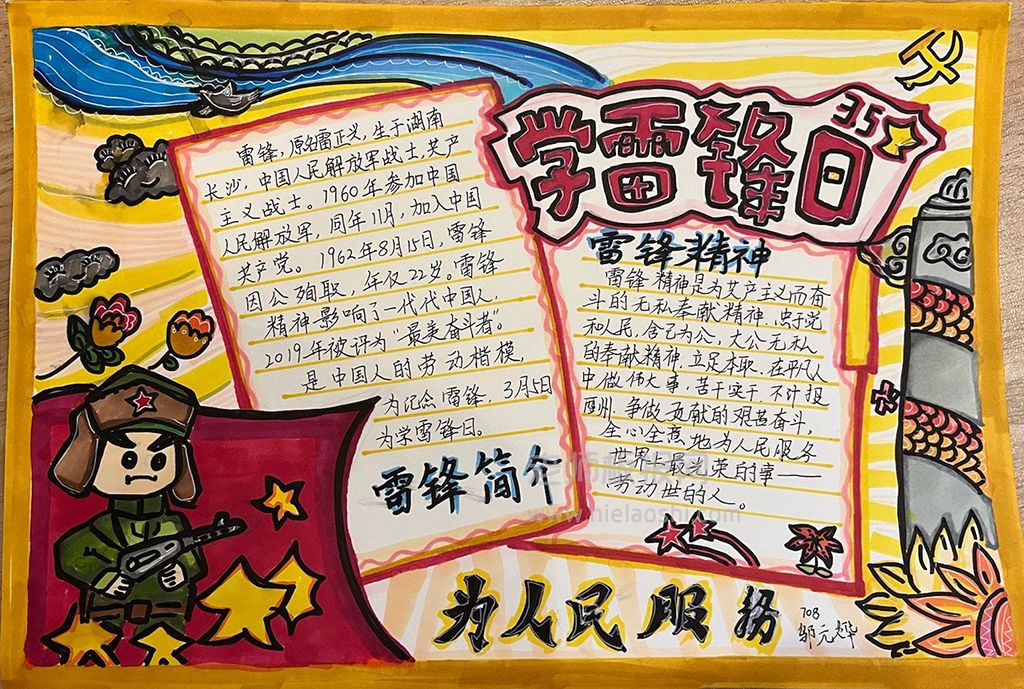 学雷锋日
35
雷锋，原名雷正义，生于湖南
长沙，中国人民解放军战士，共产
主义战士。1960年参加中国
人民解放军，同年11月，加入中国
共产党。1962年8月15日，雷锋
因公殉职，年仅22岁。雷锋
精神影响了一代代中国人，
2019年被评为“最美奋斗者”。
是中国人的劳动楷模，
为纪念雷锋，3月5日
为学雷锋日。
雷锋简介
雷锋精神
雷锋精神是为共产主义而奋
斗的无私奉献精神，忠于党
和人民，舍己为公，大公无私
的奉献精神，立足本职，在平凡
中做伟大事，苦干实干，不计报
酬，争做贡献的艰苦奋斗，
全心全意地为人民服务
世界上最光荣的事——
劳动世的人。
为人民服务
708
邬元烨